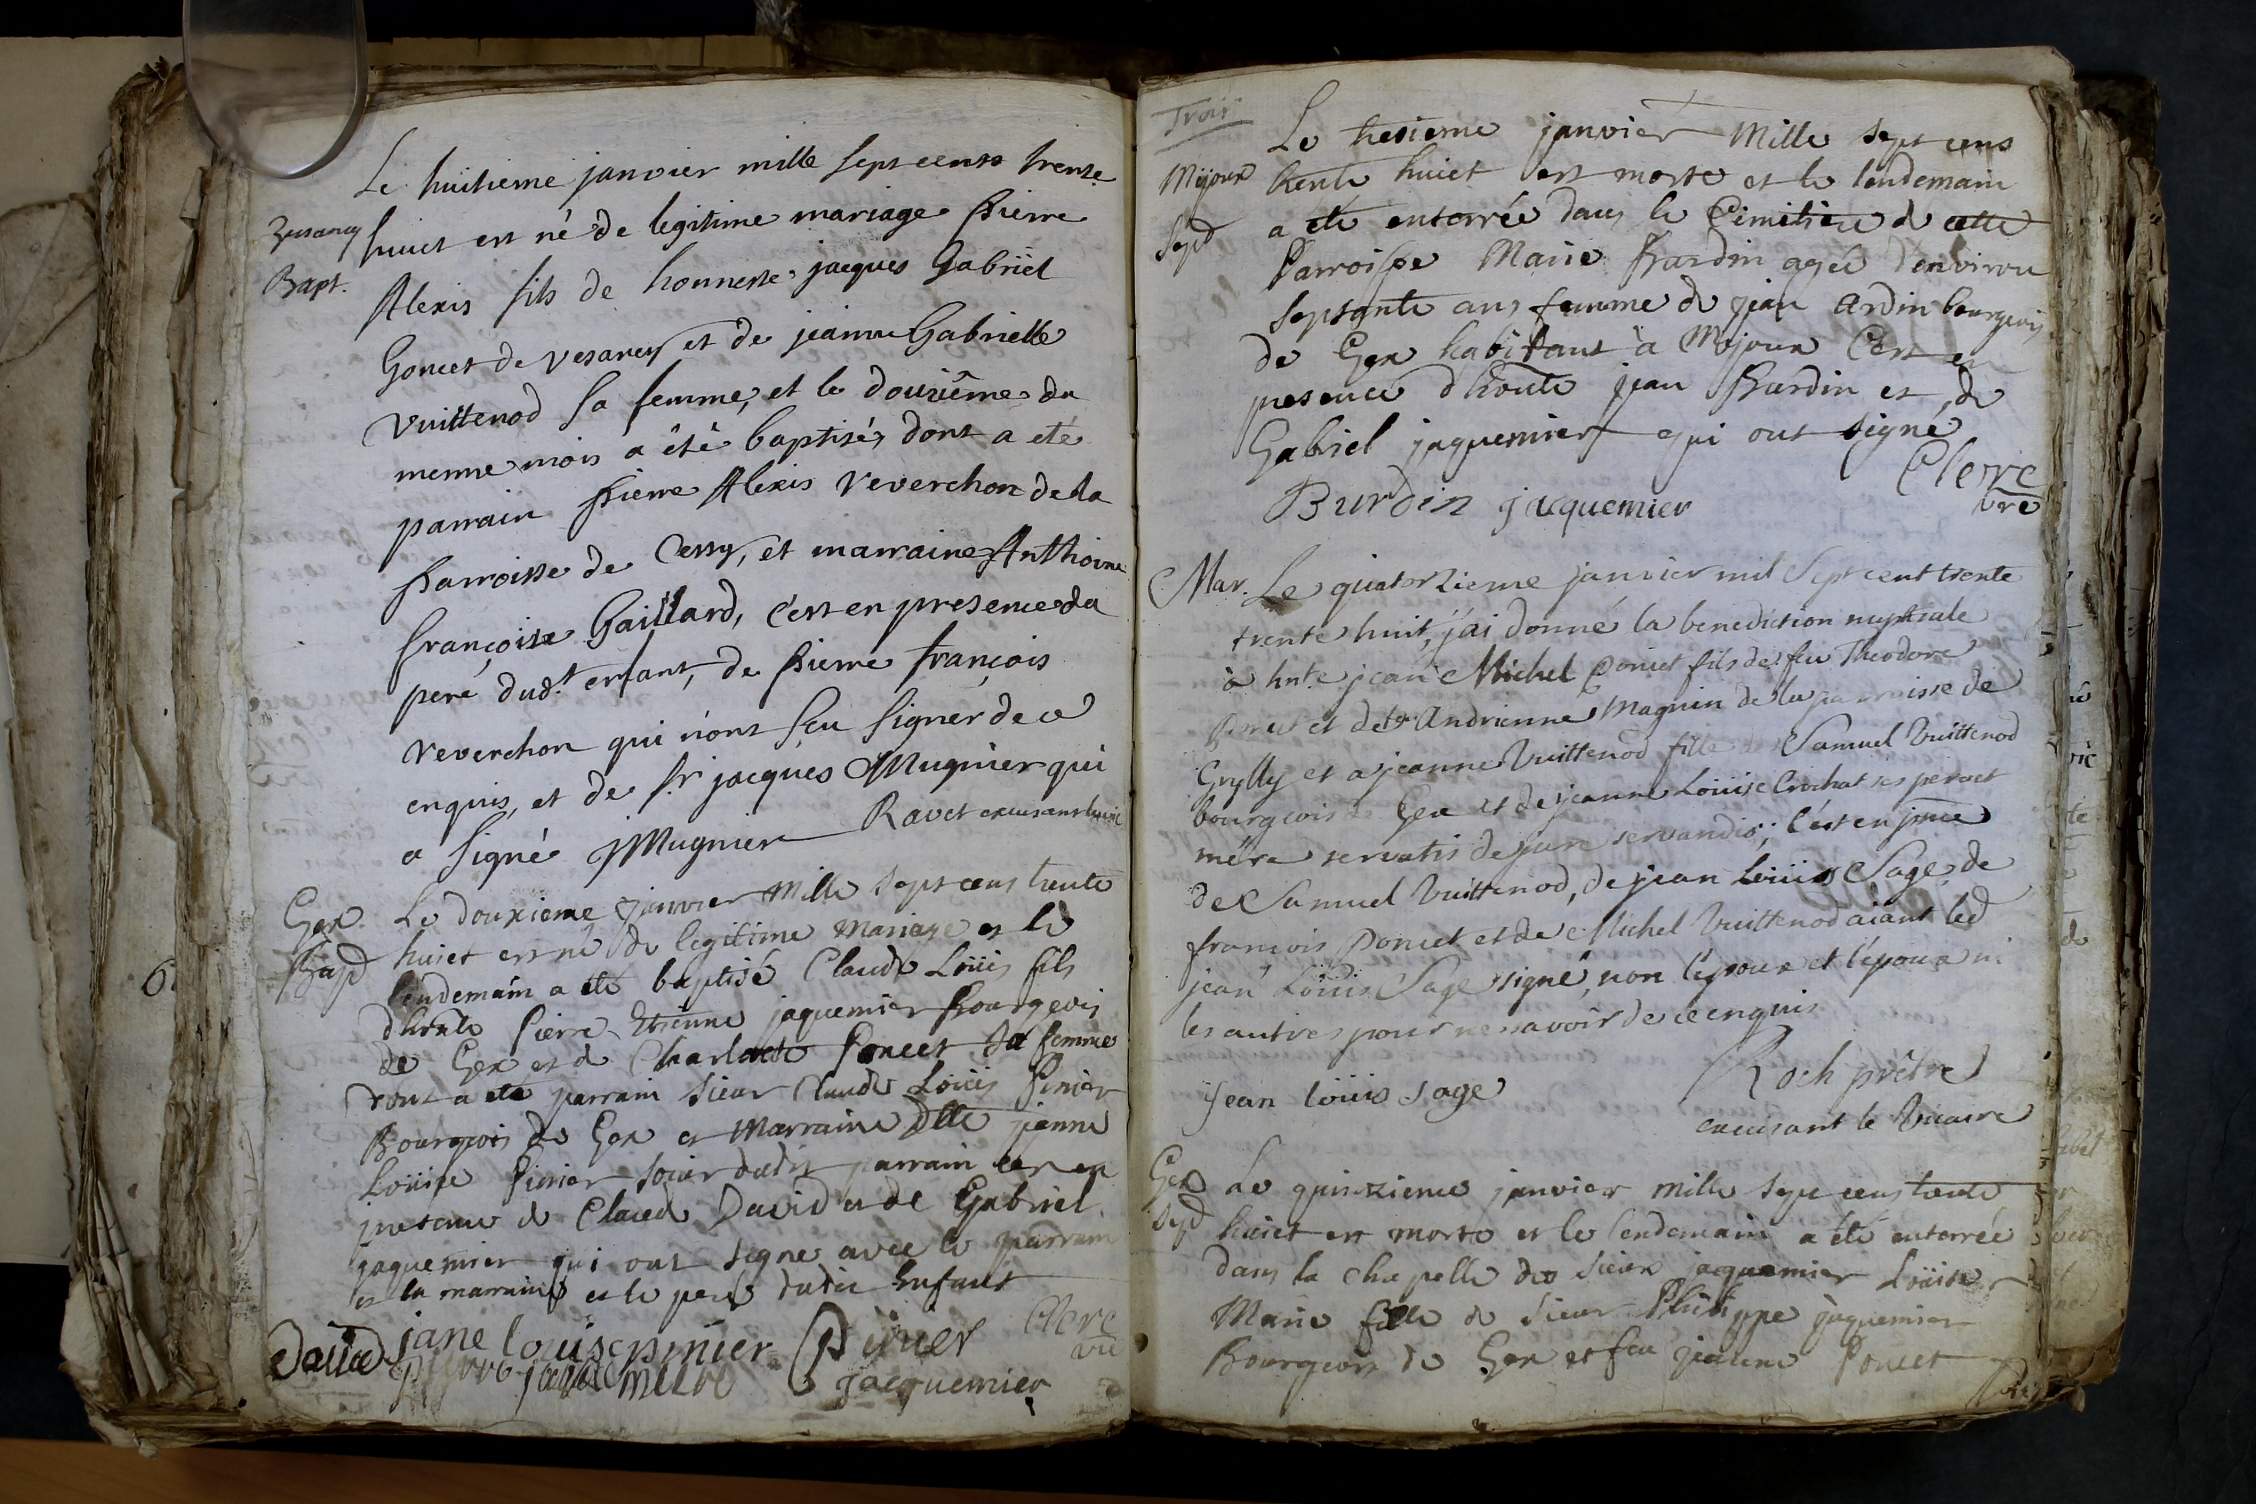 Le huitieme janvier mille sept cents trente
Vesancy huict est né de legitime mariage Pierre
Bapt. Alexis fils de honneste jacques Gabriel
Goncet de vesancy et de jeanne Gabrielle
Vuittenod sa femme, et le douziême du
meme mois a été baptisé, dont a eté
parrain Pierre Alexis reverchon de la
Parroisse de Cessy, et marraine Anthoine
françoise Gaillard, c'est en presence du
pere dud.t enfant, de Pierre françois
reverchon qui n'ont sçu signer de ce
enquis, et de Sr jacques Mugnier qui
a signé JMugnier Ravet excusant le vic
Gex Le douxieme janvier Mille sept cens trente
Bapt huict est né de legitime Mariage et le
lendemain a eté baptisé Claude Loüis fils
dhonte Pierre Etienne jaquemier Bourgeois
de Gex et de Charlotte Poncet sa femme
dont a eté parrain sieur Claude Loüis Pinier
Bourgeois de Gex et Marraine Dlle jeanne
Loüise Pinier soeur dudit parrain c'est en
presence de Claude David et de Gabriel
jaquemier qui ont signe avec le parrain
et la marraine et le pere dudit Enfant
David jane louise pinier Pinier Clerc
vic
pierre jaquemier jacquemier
Trois
Le tresieme janvier Mille sept cens
Mijoux trente huict est morte et le lendemain
Sepd a eté enterrée dans le Cimitiere de cette
Parroisse Marie Burdin agée d'environ
septante ans femme de jean Ardin bourgeois
de Gex habitant à Mijoux C'est en
presence dhonte jean Burdin et de
Gabriel jaquemier qui ont signé
Clerc
Burdin jacquemier
vre
Mar. Le quatorzieme janvier mil sept cent trente
trente huit, j'ai donné la benediction nuptiale
à hnte jean Michel Poncet fils de feu Theodore
Poncet et de Andrienne Magnin de la parroisse de
Grylly et a jeanne Vuittenod fille de Samuel Vuittenod
bourgeois de Gex et de jeanne Loüise Crochat ses pere et
mére servatis de jure servandis; c'est en pnce
de Samuel Vuittenod, de jean Loüis Sage, de
francois Poncet et de Michel Vuittenod aiant led
jean Loüis Sage signé, non l'epoux et l'epouse ni
les autres pour ne savoir de ce enquis
Roch prêtre
jean loüis sage
excusant le Vicaire
Gex Le quinzieme janvier mille sept cens trente
Sepd huict est morte et le lendemain a eté enterrée
dans la chapelle des sieurs jaquemier Loüise
Marie fille de sieur Philippe jaquemier
Bourgeois de Gex et feu jeanne Poncet